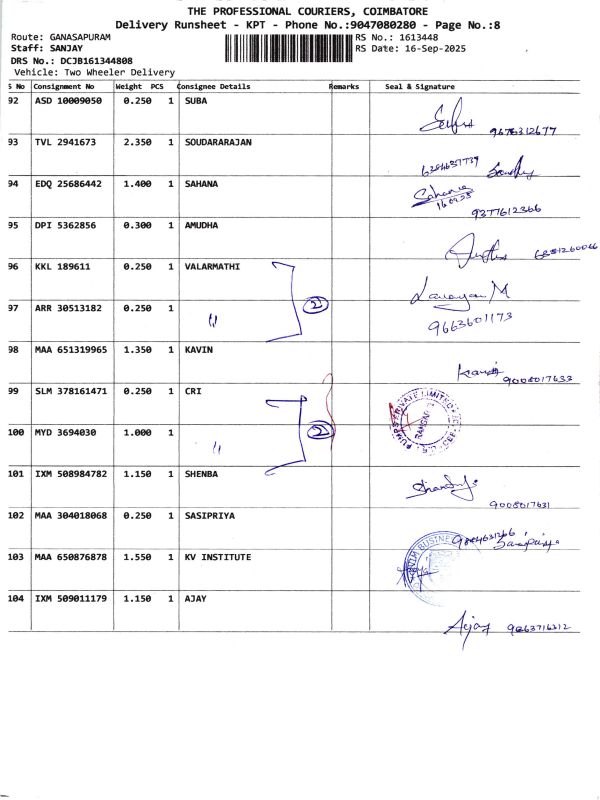 THE PROFESSIONAL COURIERS, COIMBATORE
Delivery Runsheet - KPT - Phone No.:9047080280 - Page No.:8
Route: GANASAPURAM RS No.: 1613448
Staff: SANJAY RS Date: 16-Sep-2025
DRS No.: DCJB161344808
Vehicle: Two Wheeler Delivery
S No Consignment No Weight PCS Consignee Details Remarks Seal & Signature
92 ASD 10009050 0.250 1 SUBA
9676312677
93 TVL 2941673 2.350 1 SOUDARARAJAN
94 EDQ 25686442 1.400 1 SAHANA Sahana
9377612366
95 DPI 5362856 0.300 1 AMUDHA
96 KKL 189611 0.250 1 VALARMATHI
2
97 ARR 30513182 0.250 1 "
9663601173
98 MAA 651319965 1.350 1 KAVIN
9008017633
99 SLM 378161471 0.250 1 CRI
2
100 MYD 3694030 1.000 1 "
101 IXM 508984782 1.150 1 SHENBA
9008017631
102 MAA 304018068 0.250 1 SASIPRIYA
103 MAA 650876878 1.550 1 KV INSTITUTE
104 IXM 509011179 1.150 1 AJAY
Ajay 9863716312